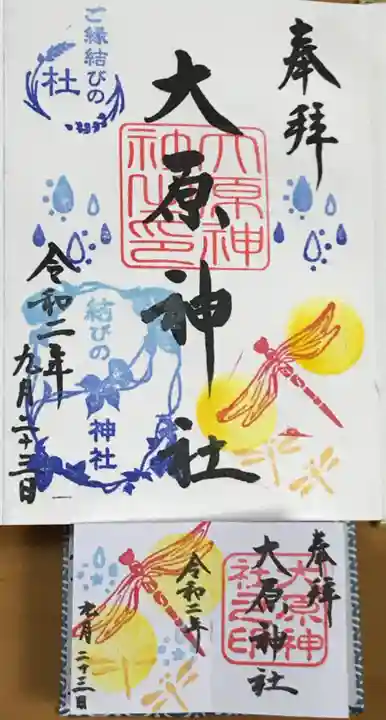 奉拝
大原神社
大原神社之印
ご縁結びの
杜
結びの
神社
令和二年
九月二十三日
奉拝
大原神社
大原神社之印
令和二年
九月二十三日